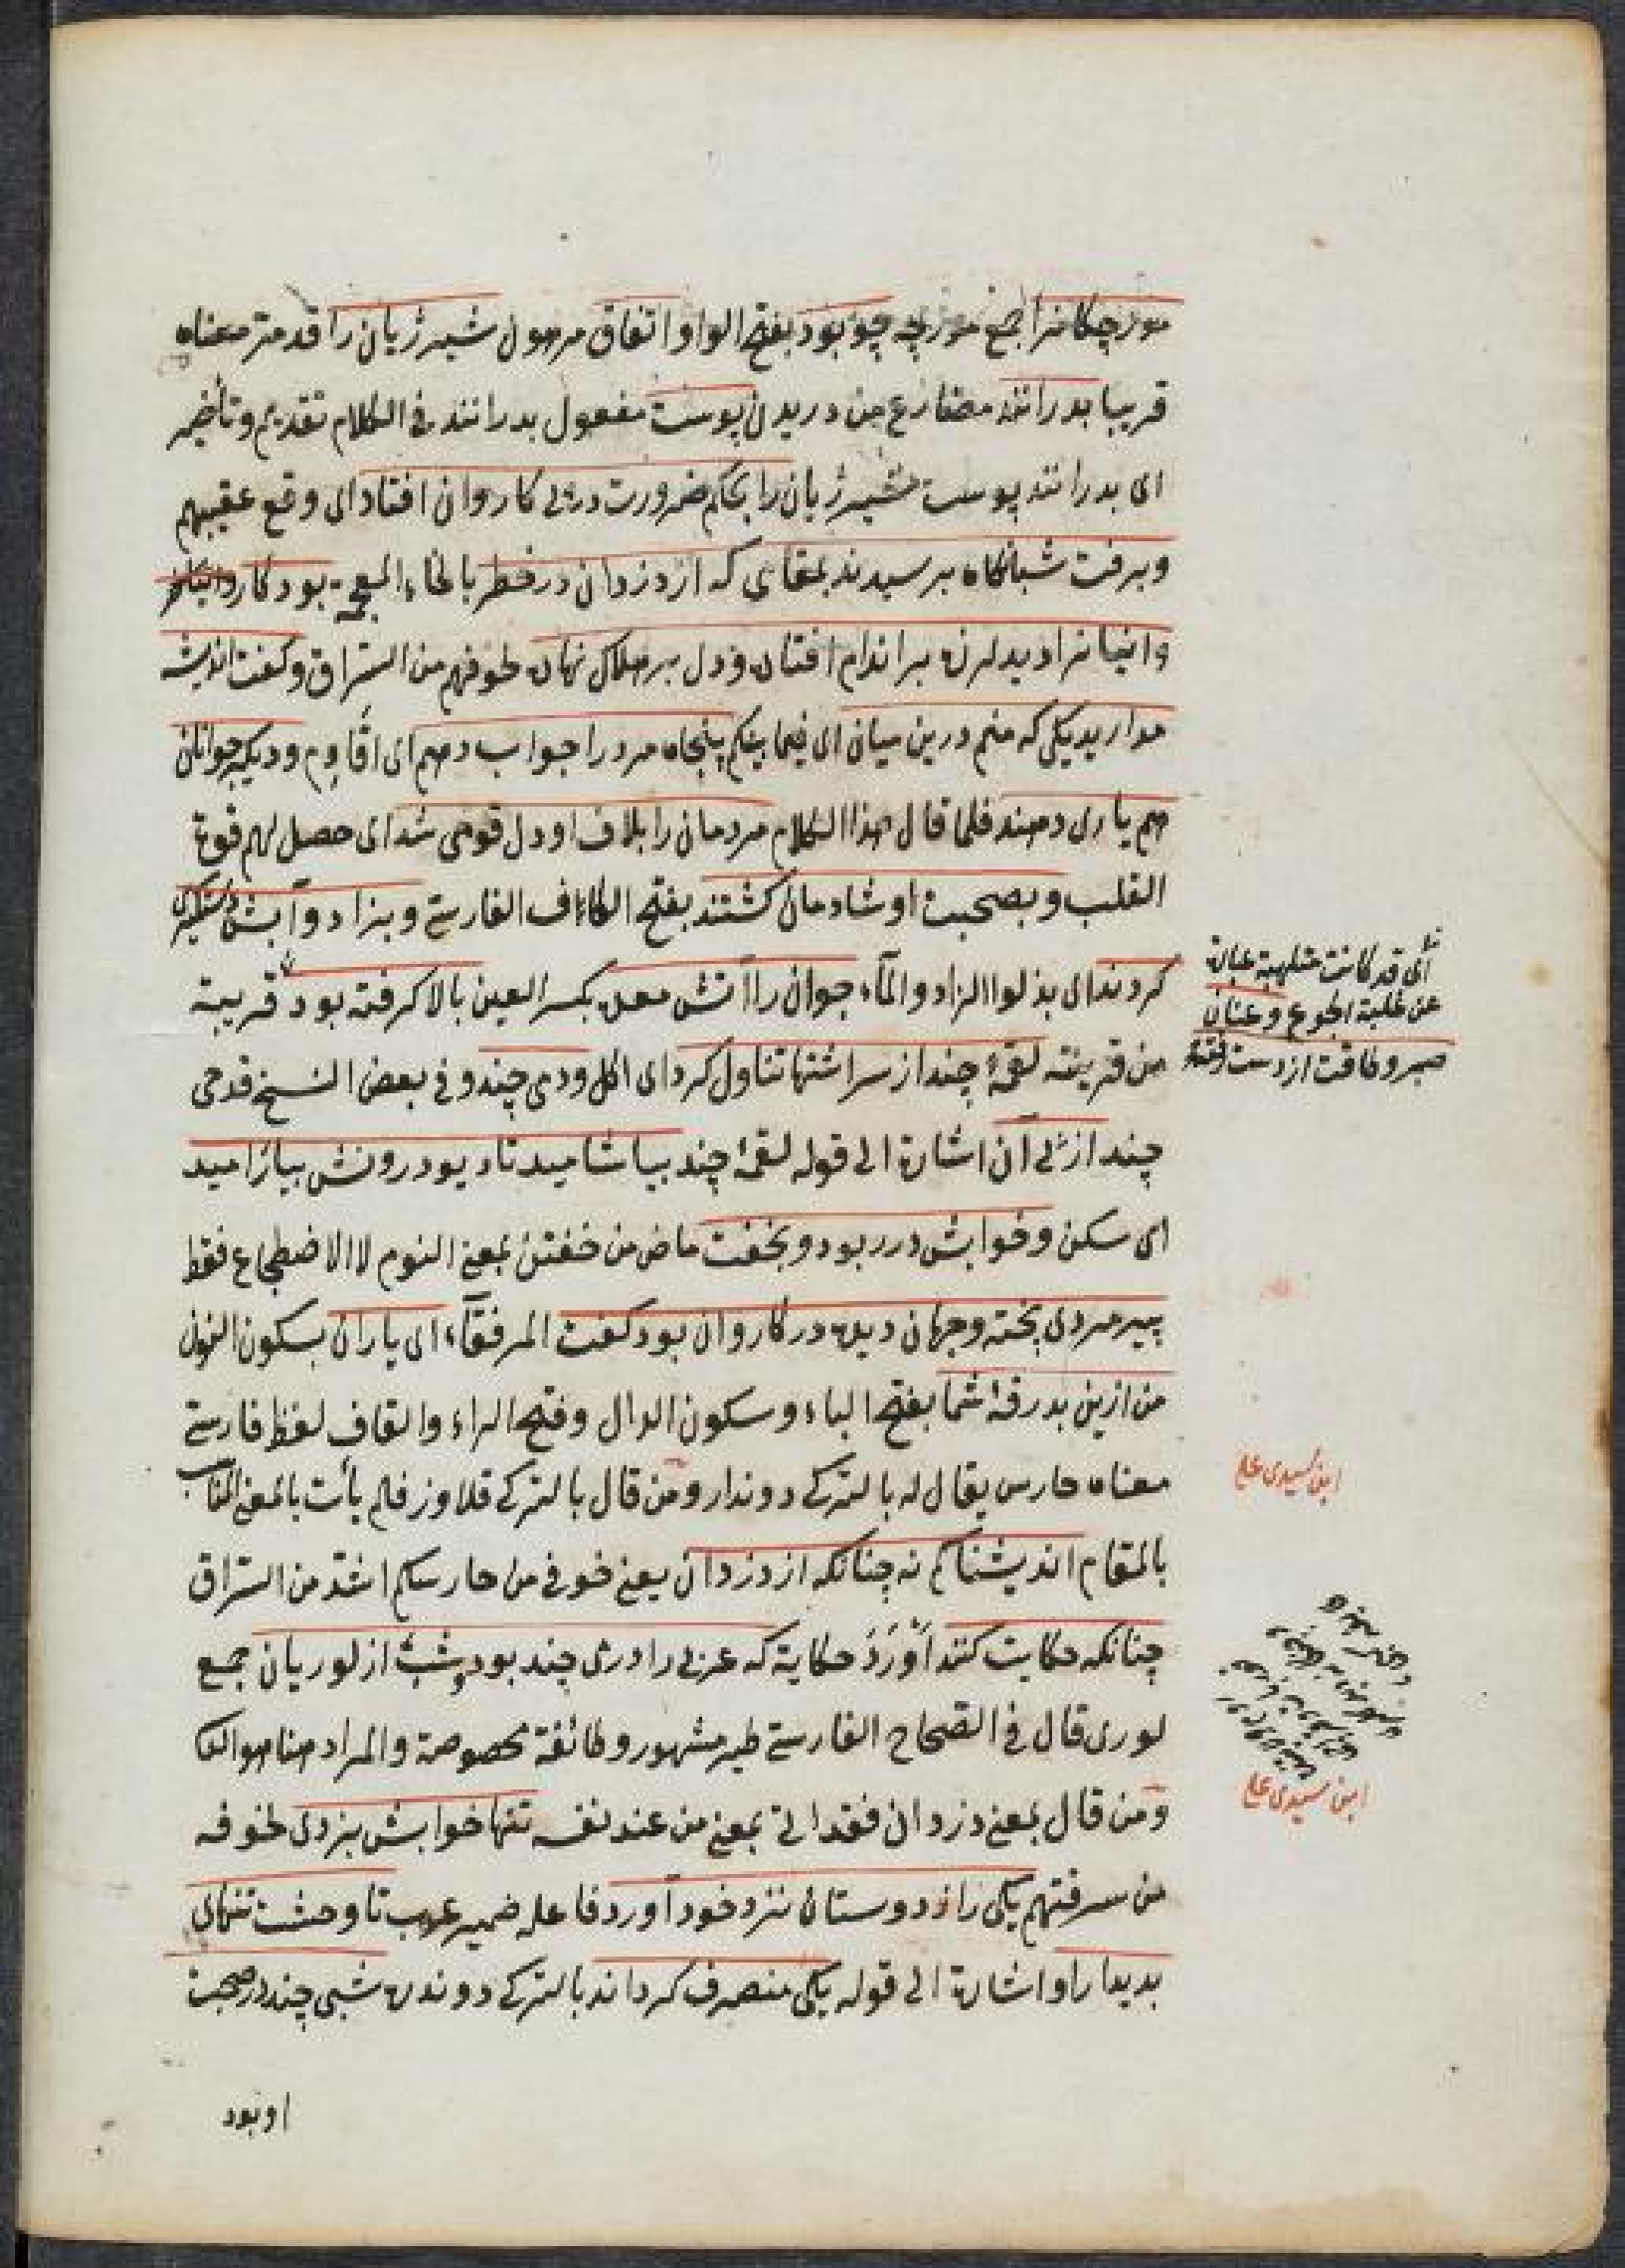 مورچکانرا جمع مورچه چو بود بفتح الواو اتفاق مرهون شیر ژیان را قد مر معناه
قریبا بدرانند مضارع من دریدن پوست مفعول بدرانند فی الکلام تقدیم وتأخیر
ای بدرانند پوست شیر ژیان را بحکم ضرورت در پی کاروان افتاد ای وقع عقیبهم
وبرفت شبانکاه برسیدند بمقامی که از دزدان در خطر بالخاء المعجمة بود کاروانیانرا
وانیانرا دید لرزه بر اندام افتاده ودل بر هلاک نهاده لخوفهم من السراق وکفت اندیشه
مدارید یکی که منم درین میان ای فیما بینکم پنجاه مرد را جواب دهم ای اقاوم ودیکر جوانان
هم یاری دهند فلما قال هذا الکلام مردمان را بلاف او دل قوی شد ای حصل لهم قوة
القلب وبصحبت او شادمان کشتند بفتح الکاف الفارسی وبزاد وآبش دستکیری
کردند ای بذلوا الزاد والمآء جوان را آتش معده بکسر العین بالا کرفته بود قریبة
من قرینته لقمهٔ چند از سر اشتها تناول کرد ای اکل ودمی چند وفی بعض النسخ قدحی
چند از پی آن اشارة الی قوله لقمهٔ چند بیاشامید تا دیو درونش بیارامید
ای سکن وخوابش در ربود وبخفت ماض من خفتن بمعنی النوم لا الاضطجاع فقط
پیر مردی پخته وجهان دیده در کاروان بود کفت للرفقآء ای یاران بسکون النون
من ازین بدرقهٔ شما بفتح الباء وسکون الدال وفتح الراء والقاف لفظ فارسی
معناه حارس یقال له بالترکی دوندار ومن قال بالترکی قلاوز فلم یأت بالمعنی المناسب
بالمقام اندیشناکم نه چنانکه از دزدان یعنی خوفی من حارسکم اشد من السراق
چنانکه حکایت کنند اَوْرَدَ حکایة که عربی را درمی چند بود وشب از لوریان جمع
لوری قال فی الصحاح الفارسی طیر مشهور وطائفة مخصوصة والمراد هنا هو الثا
ومن قال بمعنی دزدان فقد اتی بمعنی من عند نفسه تنها خوابش نبردی لخوفه
من سرقتهم یکی را از دوستان نزد خود آورد فاعله ضمیر عرب تا وحشت تنهائی
بدیدار او اشارة الی قوله یکی منصرف کرداند بالترکی دونده شبی چند در صحبت
او بود
ای قد کانت متلهبة عبارة
عن غلبة الجوع وعنان
صبر وطاقت از دست رفته
ابن سیدی علی
ابن سیدی علی